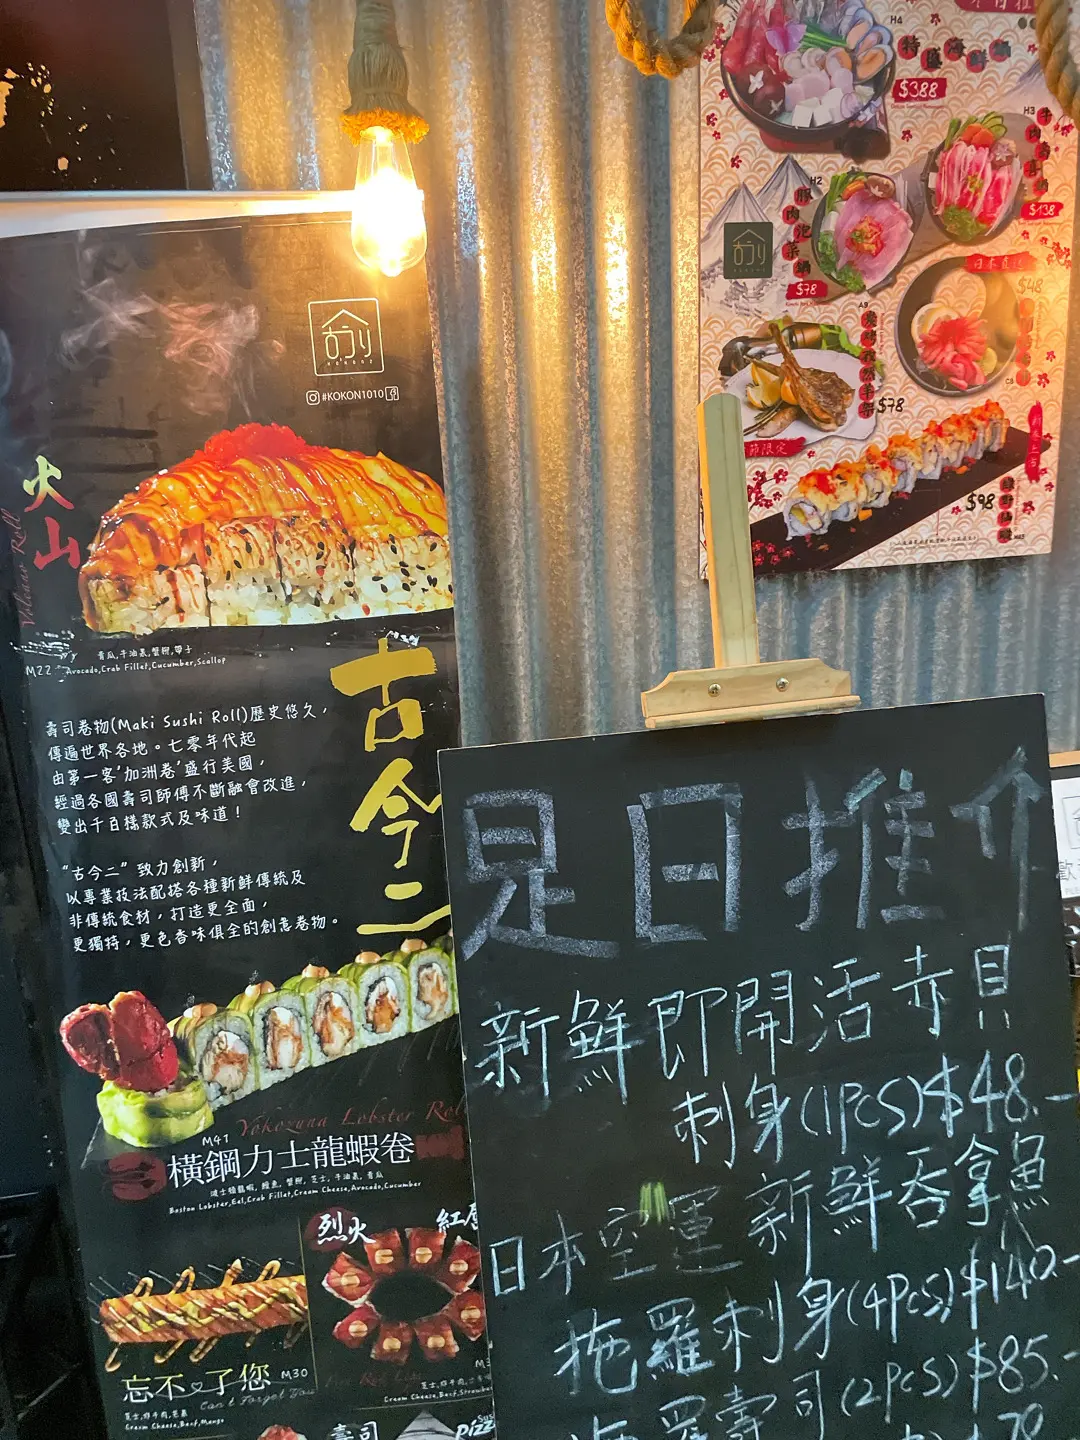 古今二
#KOKON1010
火山
Volcano Roll
M22
青瓜,牛油果,蟹柳,帶子
Avocado,Crab Fillet,Cucumber,Scallop
古今二
壽司卷物(Maki Sushi Roll)歷史悠久，
傳遍世界各地。七零年代起
由第一客'加洲卷'盛行美國，
經過各國壽司師傅不斷融會改進，
變出千百樣款式及味道！
"古今二" 致力創新，
以專業技法配搭各種新鮮傳統及
非傳統食材，打造更全面，
更獨特，更色香味俱全的創意卷物。
Yokozuna Lobster Roll
M41
橫鋼力士龍蝦卷
波士頓龍蝦, 鰻魚, 蟹柳, 芝士, 牛油果, 青瓜
Boston Lobster,Eel,Crab Fillet,Cream Cheese,Avocado,Cucumber
烈火
忘不了您
M30
Can't Forget You
Cream Cheese,Beef,Mango
Cream Cheese,Beef,Strawberry
壽司
H4
特盛海鮮鍋
$388
H3
牛肉壽喜鍋
$138
H2
豚肉泡菜鍋
$78
日本直送
$48
C8
A9
$78
節限定
$98
是日推介
新鮮即開活赤貝
刺身(1PCS)$48.-
日本空運新鮮吞拿魚
拖羅刺身(4PCS)$140.-
拖羅壽司(2PCS)$85.-